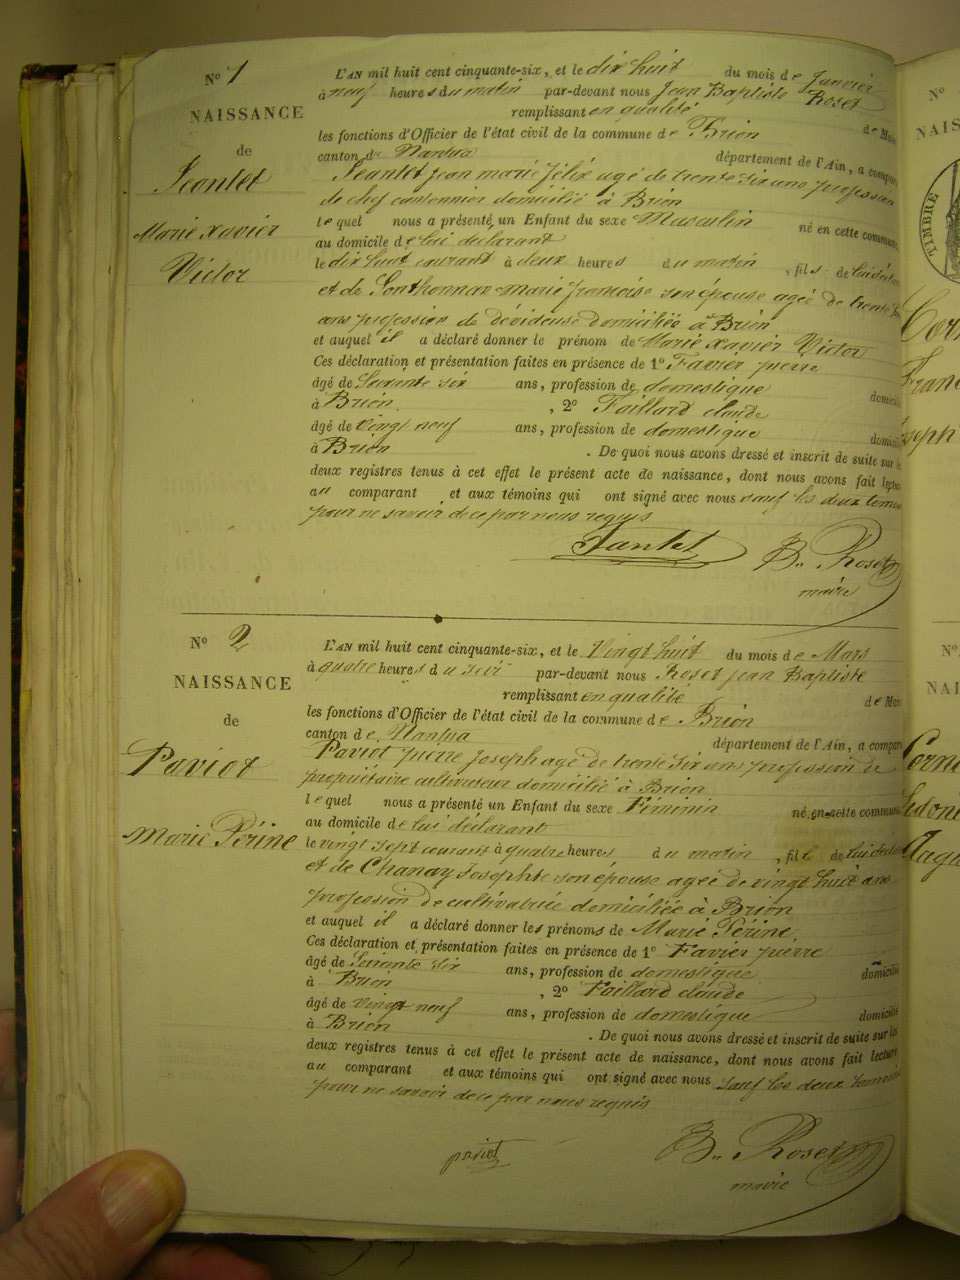 N° 1
NAISSANCE
de
Jeantet
Marie Xavier
Victor
L'AN mil huit cent cinquante-six, et le dix huit du mois de Janvier
à neuf heures du matin par-devant nous Jean Baptiste Roset
remplissant en qualité de Mai
les fonctions d'Officier de l'état civil de la commune de Brion
canton de Nantua département de l'Ain, a compar
Jeantet jean marie félix agé de trente six ans profession
de chef cantonnier domicilié à Brion
lequel nous a présenté un Enfant du sexe Masculin né en cette commune,
au domicile de lui déclarant
le dix huit courant à deux heures du matin , fils de lui décl
et de Sonthonnax marie françoise son épouse agée de trente
ans profession de dévideuse domiciliée à Brion
et auquel il a déclaré donner le prénom de Marie Xavier Victor
Ces déclaration et présentation faites en présence de 1° Favier pierre
âgé de Soixante six ans, profession de domestique domicilié
à Brion , 2° Foillard claude
âgé de vingt neuf ans, profession de domestique domicilié
à Brion . De quoi nous avons dressé et inscrit de suite sur les
deux registres tenus à cet effet le présent acte de naissance, dont nous avons fait lecture
au comparant et aux témoins qui ont signé avec nous sauf les deux temoins
pour ne savoir de ce par nous requis
Jantet B. Roset
maire
N° 2
NAISSANCE
de
Paviot
Marie Périne
L'AN mil huit cent cinquante-six, et le Vingt huit du mois de Mars
à quatre heures du soir par-devant nous Roset jean Baptiste
remplissant en qualité de Mai
les fonctions d'Officier de l'état civil de la commune de Brion
canton de Nantua département de l'Ain, a compar
Paviot pierre Joseph agé de trente six ans profession de
propriétaire cultivateur domicilié à Brion
lequel nous a présenté un Enfant du sexe Féminin né en cette commune
au domicile de lui déclarant
le vingt sept courant à quatre heures du matin , fille de lui décl
et de Chanay Josephte son épouse agée de vingt huit ans
profession de cultivatrice domiciliée à Brion
et auquel il a déclaré donner les prénoms de Marie Périne
Ces déclaration et présentation faites en présence de 1° Favier pierre
âgé de Soixante six ans, profession de domestique domicilié
à Brion , 2° Foillard claude
âgé de vingt neuf ans, profession de domestique domicilié
à Brion . De quoi nous avons dressé et inscrit de suite sur les
deux registres tenus à cet effet le présent acte de naissance, dont nous avons fait lecture
au comparant et aux témoins qui ont signé avec nous sauf les deux temoins
pour ne savoir de ce par nous requis
paviot B. Roset
maire
N°
NAIS
TIMBRE
Corn
Fran
Joseph
N°
NAI
Corne